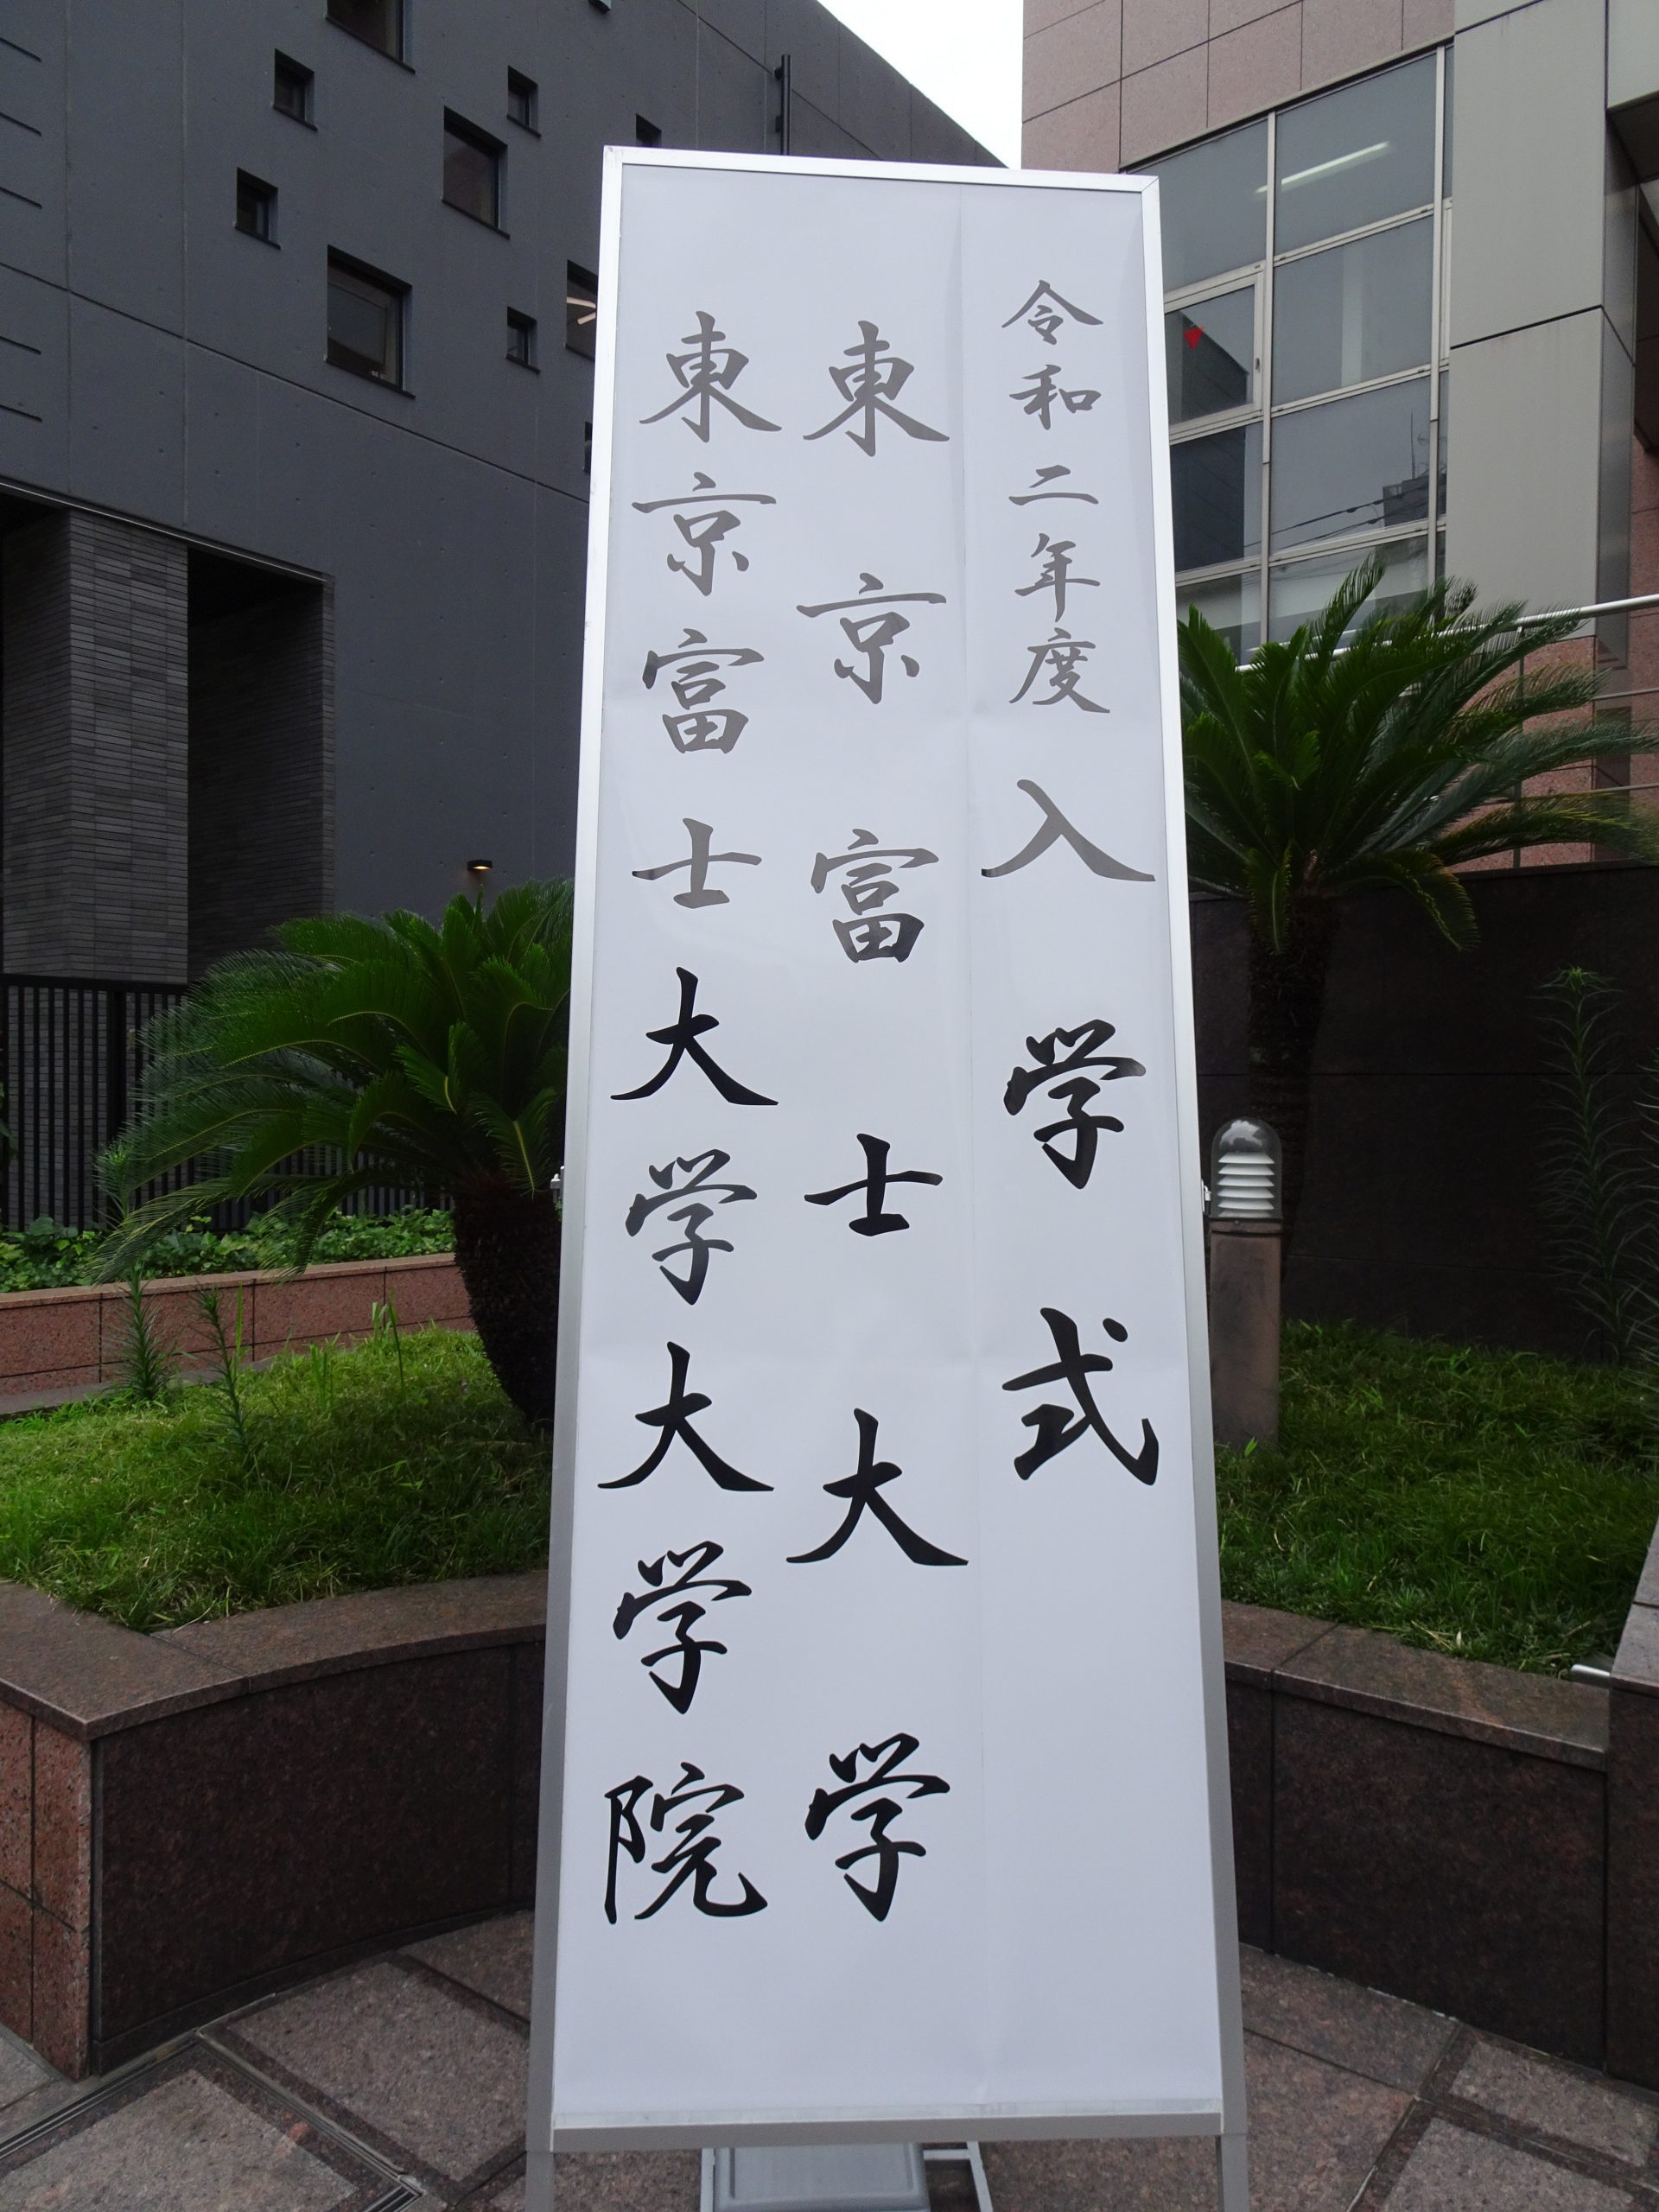 令和二年度 入学式
東京富士大学
東京富士大学大学院